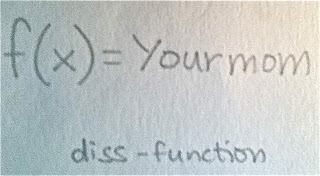 f(x) = Yourmom
diss-function